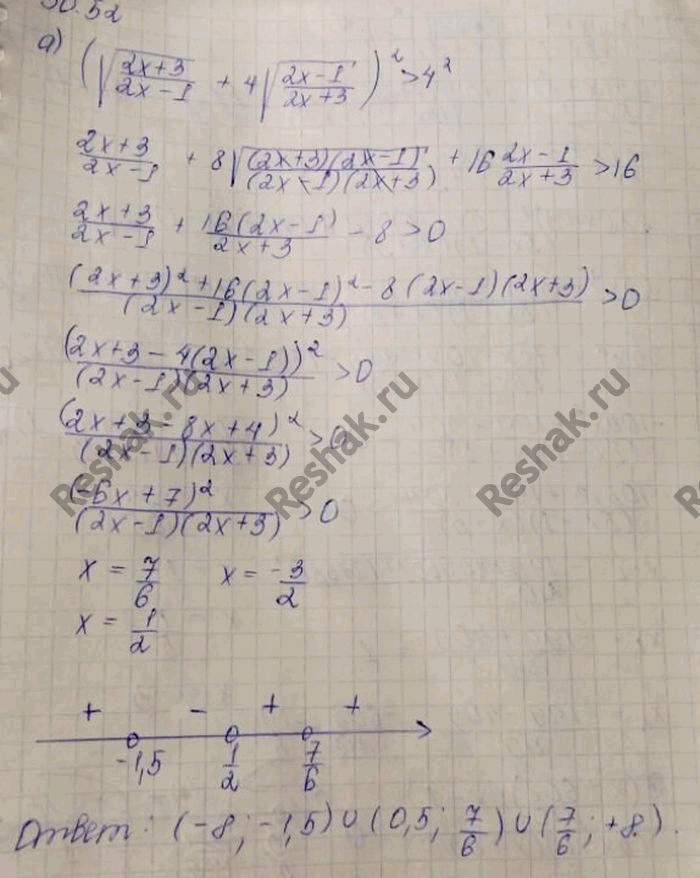 30.52
а) (√((2x+3)/(2x-1)) + 4√((2x-1)/(2x+3)))² > 4²
(2x+3)/(2x-1) + 8√(((2x+3)(2x-1))/((2x-1)(2x+3))) + 16 (2x-1)/(2x+3) > 16
(2x+3)/(2x-1) + 16(2x-1)/(2x+3) - 8 > 0
((2x+3)² + 16(2x-1)² - 8(2x-1)(2x+3))/((2x-1)(2x+3)) > 0
(2x+3 - 4(2x-1))²/((2x-1)(2x+3)) > 0
(2x+3 - 8x+4)²/((2x-1)(2x+3)) > 0
(-6x+7)²/((2x-1)(2x+3)) > 0
x = 7/6 x = -3/2
x = 1/2
+ - + +
-1,5 1/2 7/6
Ответ: (-8; -1,5) ∪ (0,5; 7/6) ∪ (7/6; +8).
Reshak.ru Reshak.ru Reshak.ru